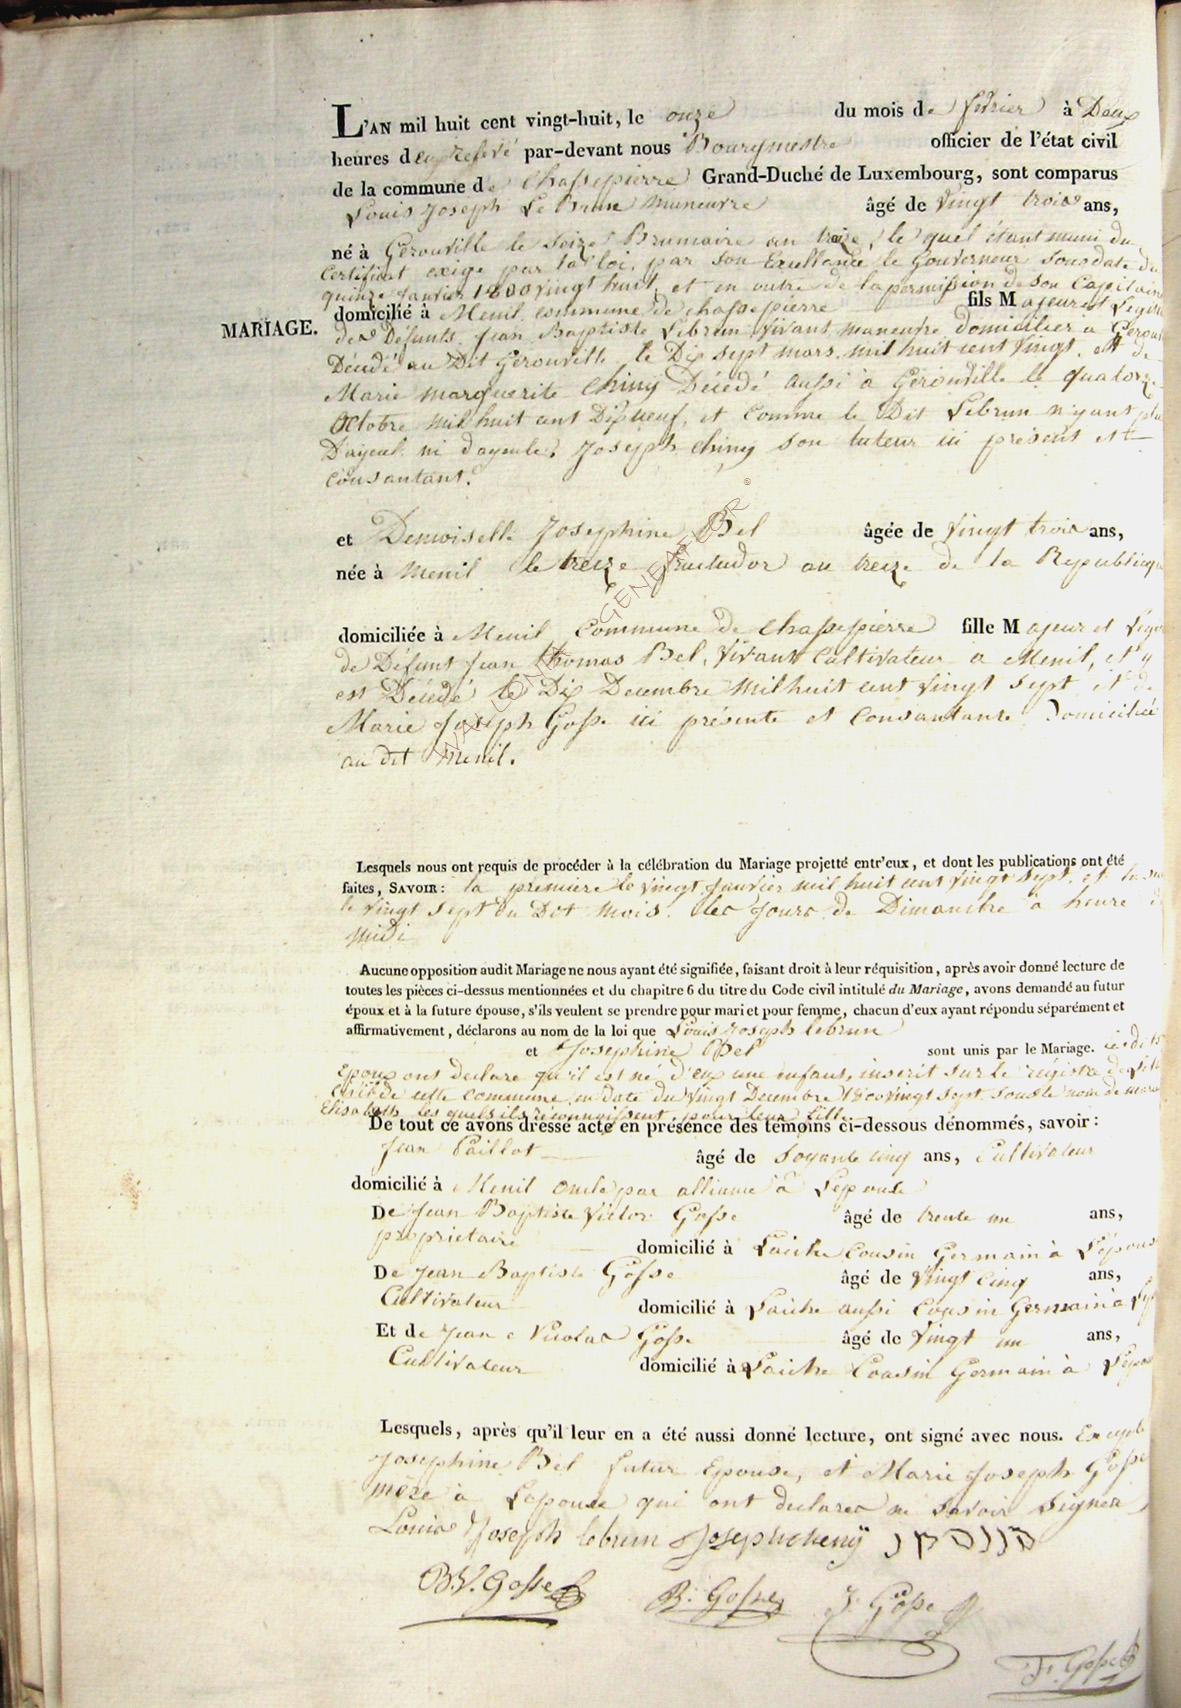 L'AN mil huit cent vingt-huit, le onze du mois de fevrier à Deux
heures de relevé par-devant nous Bourgmestre officier de l'état civil
de la commune de Chassepierre Grand-Duché de Luxembourg, sont comparus
Louis Joseph Le Brun Maneuvre âgé de vingt trois ans,
né à Gerouville le seize Brumaire an treize, le quel étant muni du
Certificat exigé par la loi, par son Exellance le Gouverneur sous date du
quinze Janvier 1800 vingt huit, et en outre de la permission de son Capitaine
domicilié à Menil commune de chassepierre fils Majeur et
MARIAGE.
des Defunts Jean Baptiste Lebrun vivant maneuvre domicilier a
Décédé au Dit Gerouville le Dix sept mars mil huit cent vingt, et de
Marie marguerite Chiny Décédé aussi à Gerouville le quatorze
Octobre mil huit cent Dixneuf, et comme le Dit Lebrun n'yant plus
D'ayeul ni d'ayeule, Joseph Chiny son tuteur ici présent et
consantant.
et Demoiselle Josephine Bel âgée de vingt trois ans,
née à Menil le treize fructudor an treize de la Republique
domiciliée à Menil Commune de Chassepierre fille Majeur et
de Défunt Jean thomas Bel, vivant Cultivateur a Menil, et y
est Décédé le Dix Decembre mil huit cent vingt sept, et de
Marie Joseph Gosse ici présente et Consantante Domiciliée
au dit Menil.
WALLONIA GENEAFLOR ©
Lesquels nous ont requis de procéder à la célébration du Mariage projetté entr'eux, et dont les publications ont été
faites, SAVOIR : la premiere le vingt Janvier mil huit cent vingt sept, et la
le vingt sept du Dit mois, les Jours de Dimanche a heure de
midi
Aucune opposition audit Mariage ne nous ayant été signifiée, faisant droit à leur réquisition, après avoir donné lecture de
toutes les pièces ci-dessus mentionnées et du chapitre 6 du titre du Code civil intitulé du Mariage, avons demandé au futur
époux et à la future épouse, s'ils veulent se prendre pour mari et pour femme, chacun d'eux ayant répondu séparément et
affirmativement, déclarons au nom de la loi que Louis Joseph lebrun
et Josephine Bel sont unis par le Mariage.
Epoux ont declare qu'il est né d'eux une enfant, inscrit sur le régistre de
de cette commune en date du vingt Decembre 1800 vingt sept sous le nom de
Elisabeth les quels ils reconnaissent pour leur fille
De tout ce avons dressé acte en présence des témoins ci-dessous dénommés, savoir :
Jean Paillot âgé de soyante cinq ans, Cultivateur
domicilié à Menil oncle par alliance à L'epouse
De Jean Baptiste Victor Gosse âgé de trente un ans,
propriétaire domicilié à Laiche Cousin Germain à L'épouse
De Jean Baptiste Gosse âgé de vingt cinq ans,
Cultivateur domicilié à Laiche aussi Cousin Germain à
Et de Jean Nicolas Gosse âgé de vingt un ans,
Cultivateur domicilié à Laiche Cousin Germain à
Lesquels, après qu'il leur en a été aussi donné lecture, ont signé avec nous.
Josephine Bel futur Epouse, et Marie Joseph Gosse
mère à Lapouse qui ont declarer ne savoir Signer
Louis Joseph lebrun Joseph cheniÿ
B.V. Gosse B. Gosse J. Gosse
F. Gosse